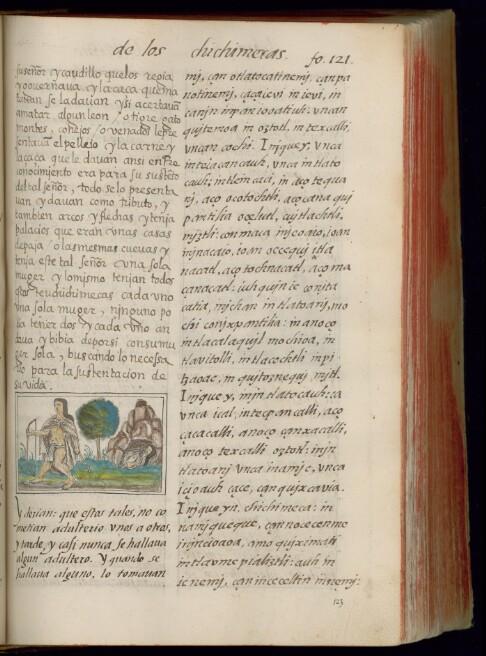 de los chichimecas. fo. 121.
su señor y caudillo que los regia,
y governava y la caça que ma
tavan se la davan y si acertavã
a matar algun leon / o tigre gato
montes, conejos / o venados le pre
sentavã el pellejo y la carne y
la caça que le davan ansi en rre
conocimiento era para su sustẽto
del tal señor, todo se lo presenta
van y davan como tributo, y
tambien arcos y flechas y tenja
palacios que eran unas casas
de paja / o las mesmas cuevas y
tenja este tal señor una sola
muger y lo mismo tenjan todos
estos teuchichimecas cada uno
una sola muger, ninguno po
dia tener dos y cada uno an
dava y bibia de por si con su mu
ger sola, buscando lo necessa
rio para la sustentacion de
su vida.
Y dezian: que estos tales, no co
metian adulterio unos a otros,
y tarde y casi nunca se hallava
algun adultero. Y quando se
hallava alguno, lo tomavan
mj, can otlatocatinemj, can pa
notinemj, caçacivi in ievi, in
canjn inpan iooatiuh: vncan
quitemoa in oztotl, in texcalli,
vncan cochi. Injque y, vnca
in teiacancauh, vnca in tlato
cauh; in tlein caci, in aço tequa
nj, aço ocotochtli, aço cana qui
pantilia ocelutl, cuitlachtli,
mjztli: conmaca in jeoaio, ioan
in jnacaio, ioan oc cequi itla
nacatl, aço tochnacatl, aço ma
çanacatl: iuh quin ic conita
catia, in jchan in tlatoanj, mo
chi conixpantilia: in anoço
in tlacalaquil mochioa, in
tlavitolli, in tlacochtli in pi
tzaoac, in quitoznequj, mjtl.
Injque y, in jn tlatocauh: ca
vnca ical, in tecpancalli, aço
çacacalli, anoço çanxacalli,
anoço texcalli oztotl: in jn
tlatoanj vnca inamje, vnca
icioauh çace, çan quixcavia.
Injque yn, chichimeca: in
namjque que, çan nocecenme
in jncioaoa, amo quiximati
in tlaome pializtli: auh in
ic nemj, can inceceltin in nemj:
123